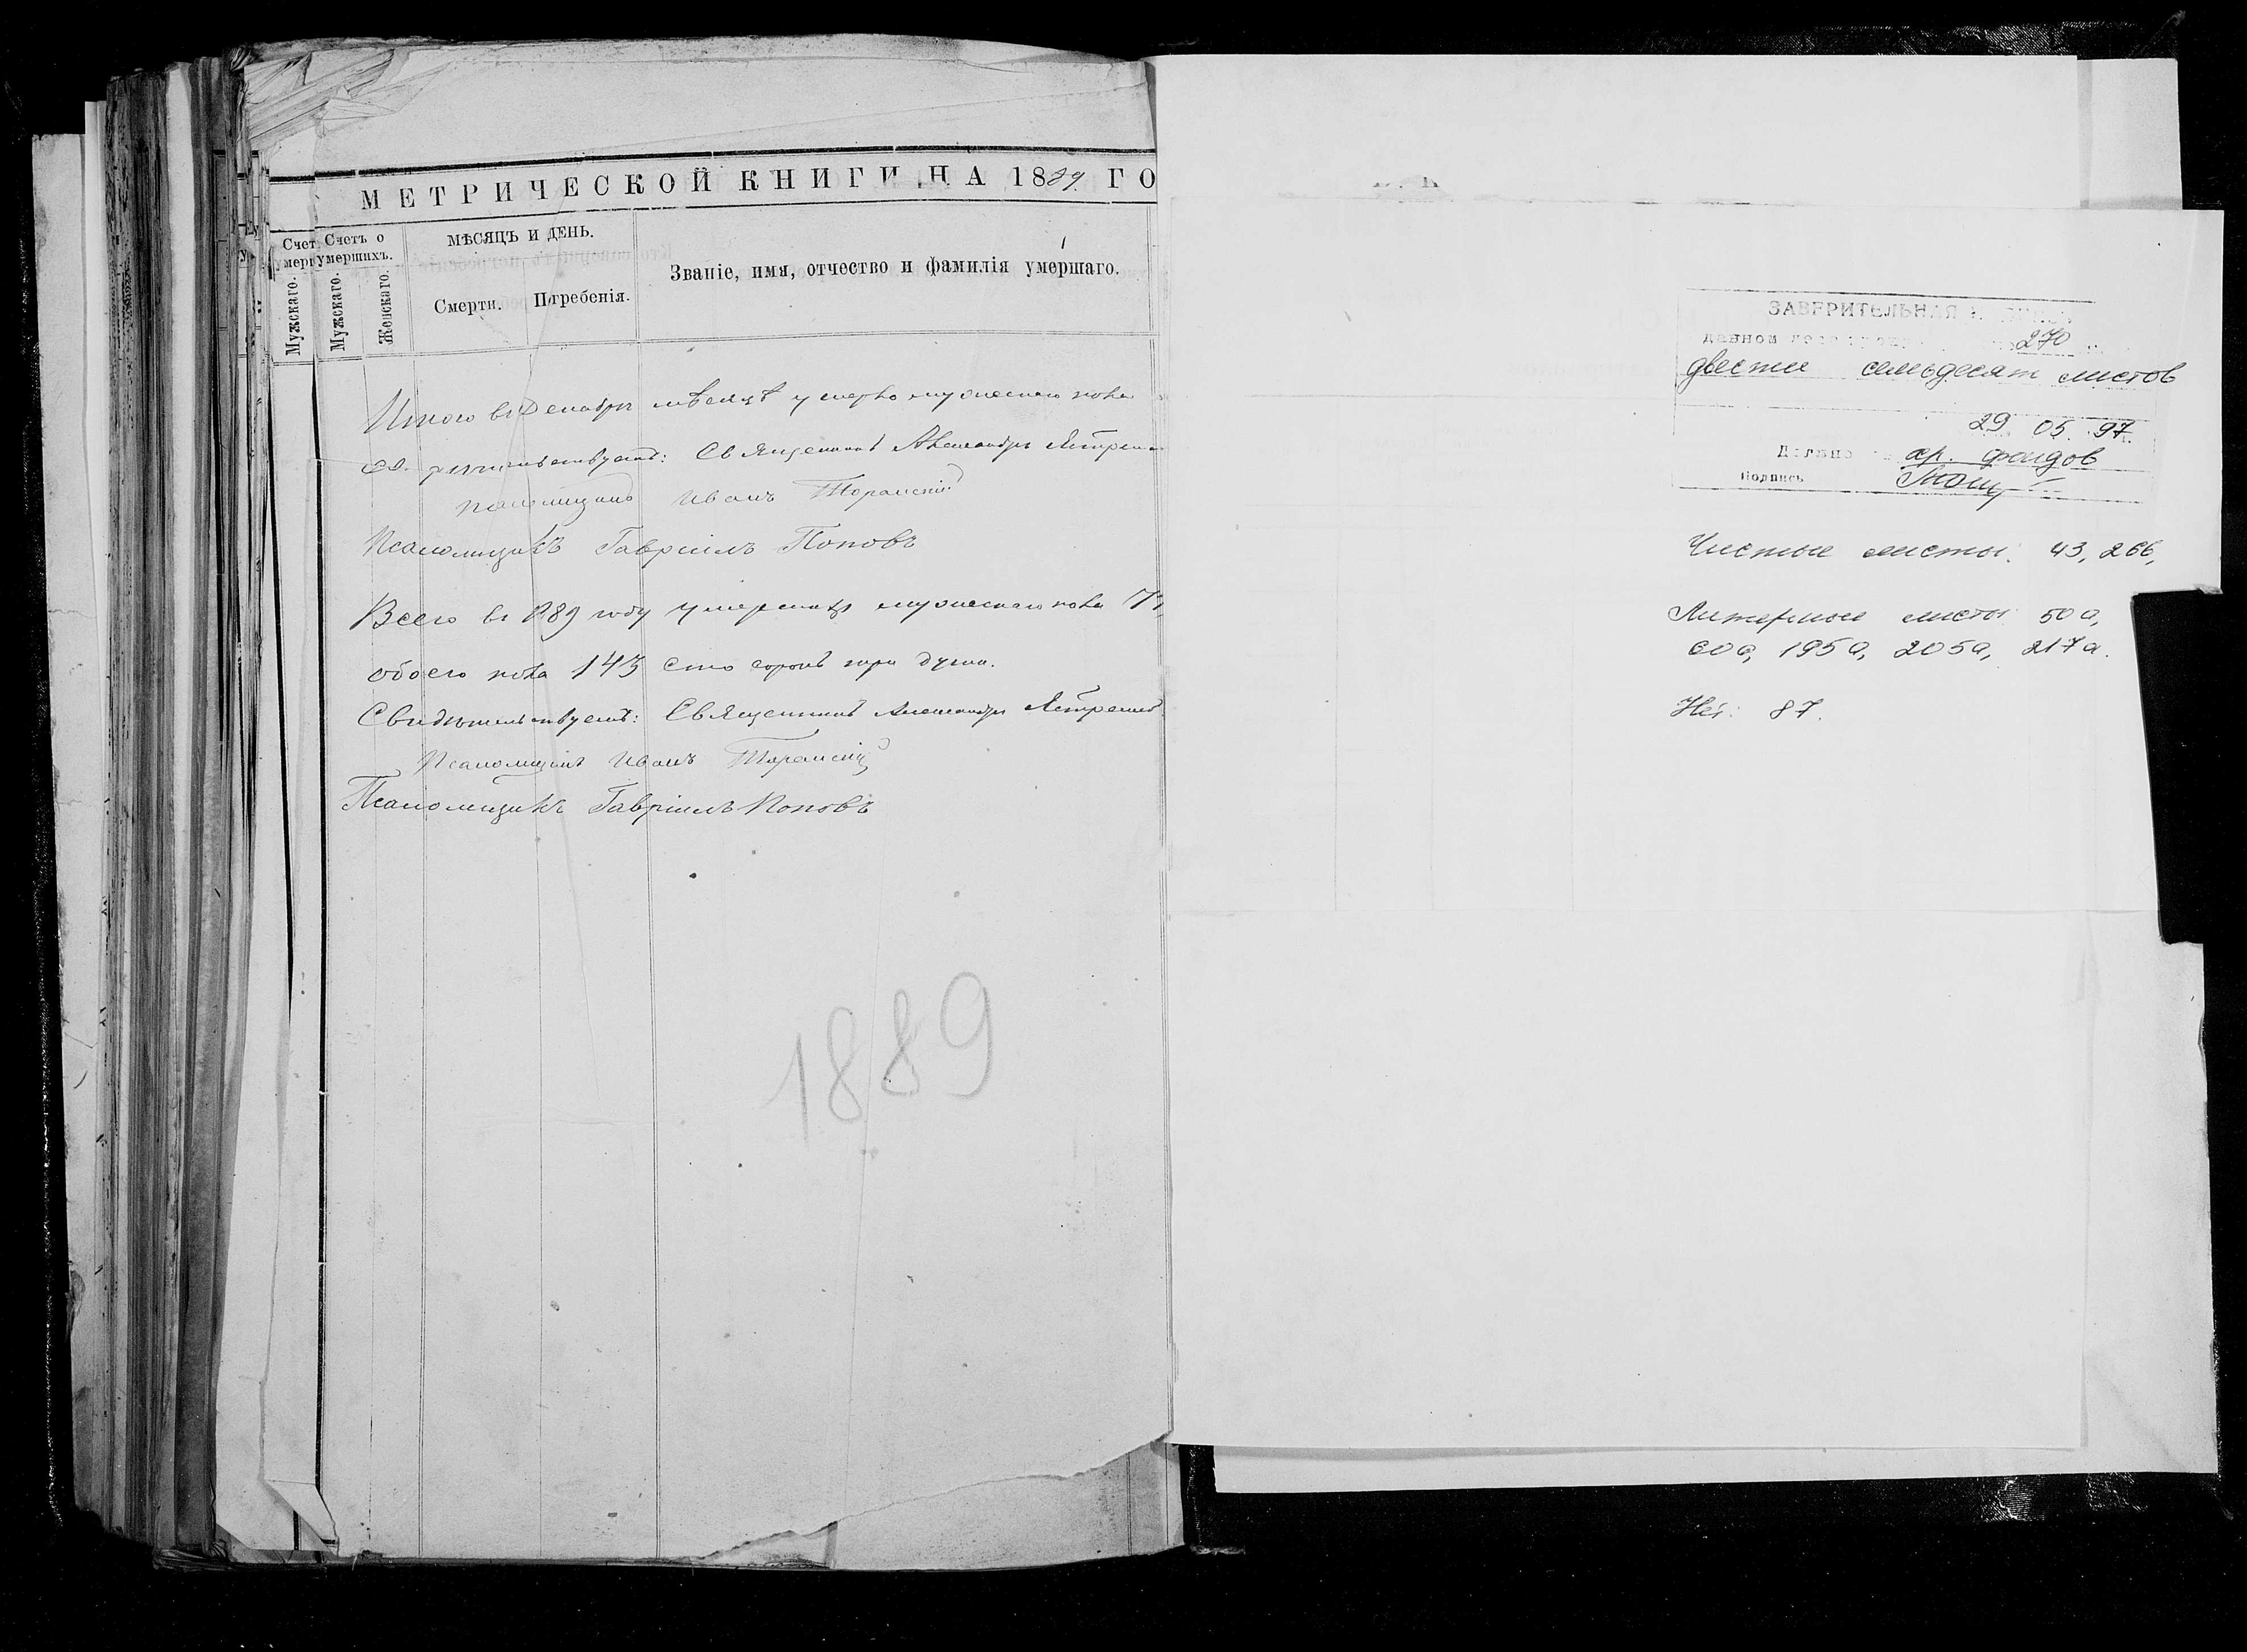 МЕТРИЧЕСКОЙ КНИГИ НА 1889 ГО
Счет Счетъ о
умерг умершихъ.
Мужскаго.
Мужскаго.
Женскаго.
МѢСЯЦЪ И ДЕНЬ.
Смерти.
Погребенія.
Званіе, имя, отчество и фамилія умершаго.
Итого въ Декабрѣ мѣсяцѣ умерло мужескаго пола
Священникъ Александръ
Псаломщикъ Иванъ
Псаломщикъ Гавріилъ Поповъ
Всего въ 1889 году умершихъ мужескаго пола 71,
обоего пола 143 сто сорокъ три души.
Свидѣтельствуетъ: Священникъ Александръ
Псаломщикъ Иванъ
Псаломщикъ Гавріилъ Поповъ
1889
ЗАВЕРИТЕЛЬНАЯ
270
двести семьдесят листов
29 05. 97.
хр. фондов
Подпись
Чистые листы: 43, 266,
Литерные листы 50а,
60а, 195а, 205а, 217а.
Нет: 87.